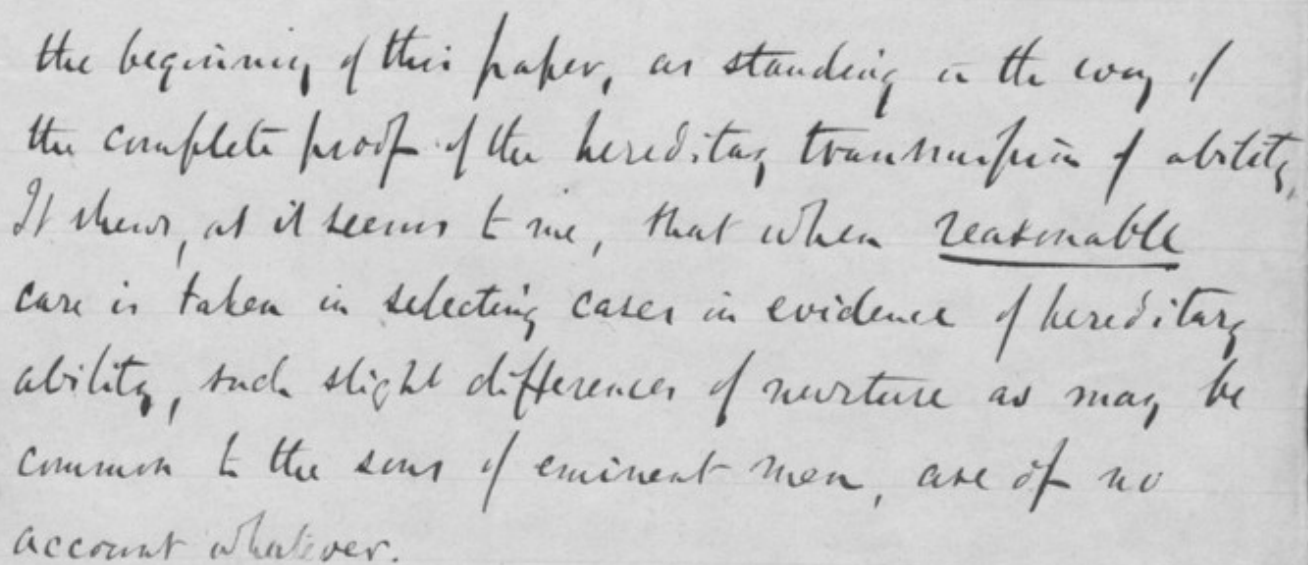 the beginning of this paper, as standing in the way of
the complete proof of the hereditary transmission of ability.
It shews, as it seems to me, that when reasonable
care is taken in selecting cases in evidence of hereditary
ability, such slight differences of nurture as may be
common to the sons of eminent men, are of no
account whatever.